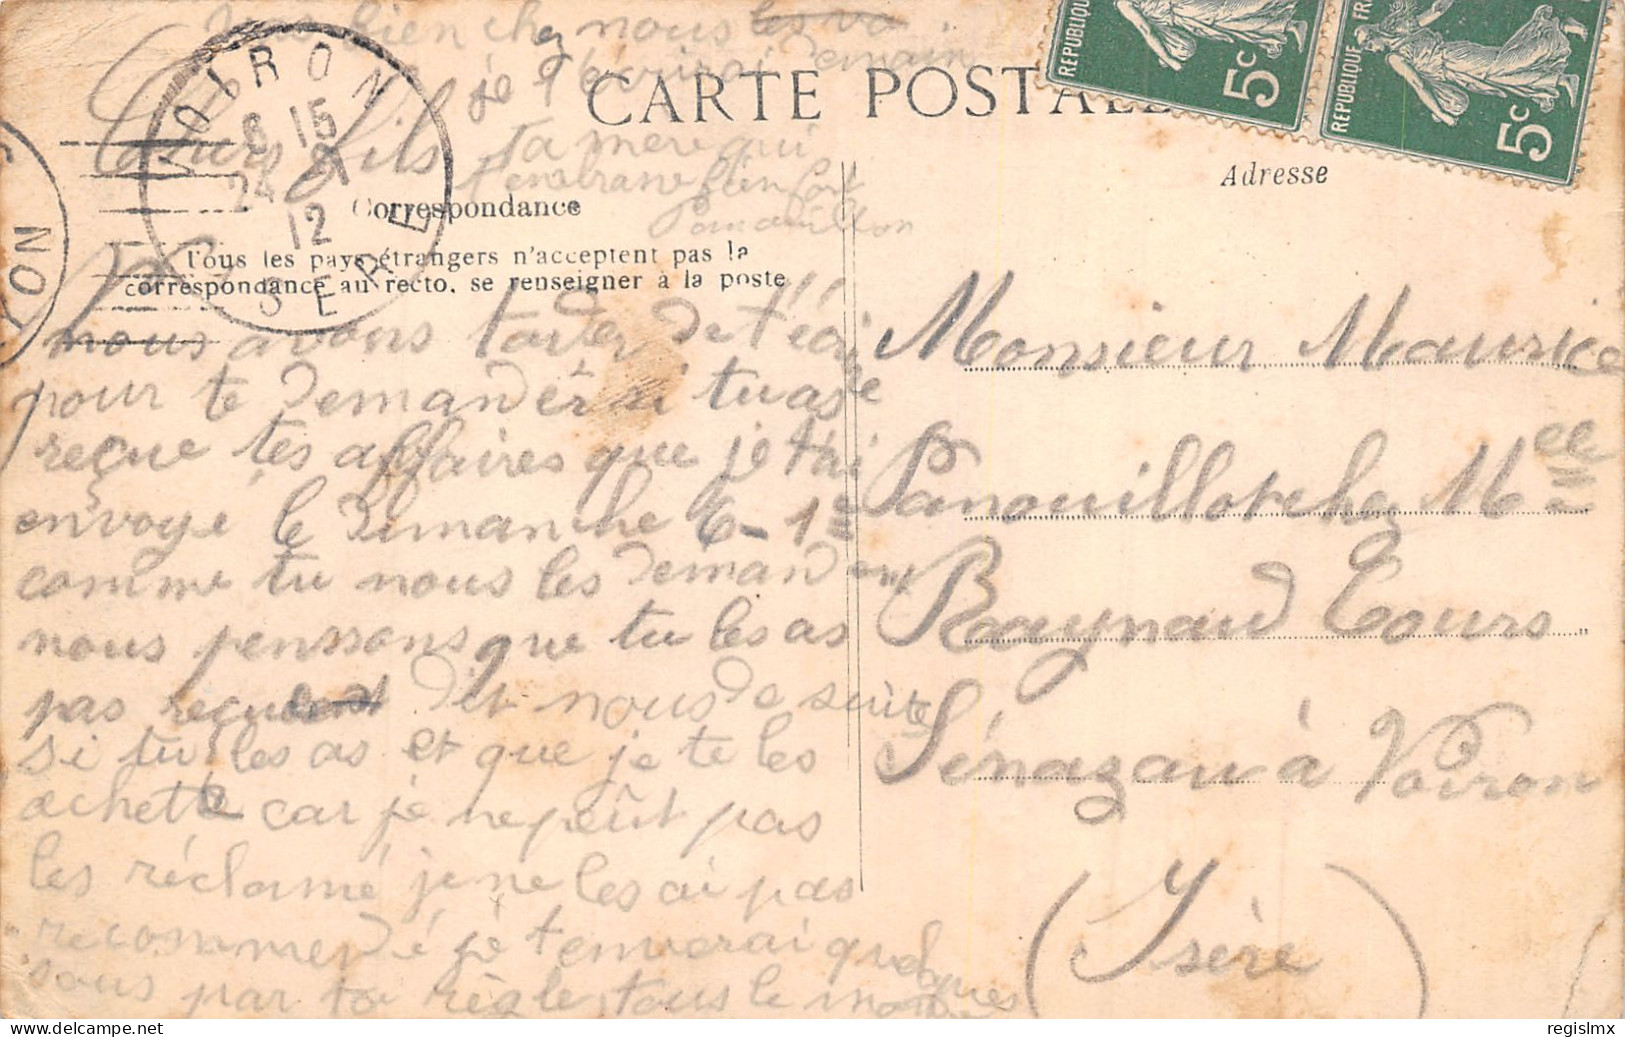 bien chez nous les va
je t'écrirai demain
ta mere qui
t'embrasse bien fort
Panouillon
VOIRON
8 15
24
12
ISERE
LYON
CARTE POSTALE
REPUBLIQUE
5c
REPUBLIQUE FR
5c
Adresse
Correspondance
Tous les pays étrangers n'acceptent pas la
correspondance au recto, se renseigner à la poste
fils
nous avons tarder de t'écrire
pour te demandér si tu as
reçue tes affaires que je t'ai
envoyé le dimanche
comme tu nous les demandé
nous penssons que tu les as
pas reçu dit nous de suite
si tu les as et que je te les
achette car je ne peût pas
les réclamé je ne les ai pas
recommendé je t'enverai quelques
sous par ta règle, tous le mon
Monsieur Maurice
Panouillot chez Mlle
Raynaud Cours
Sénozan à Voiron
(Isère)
regislmx